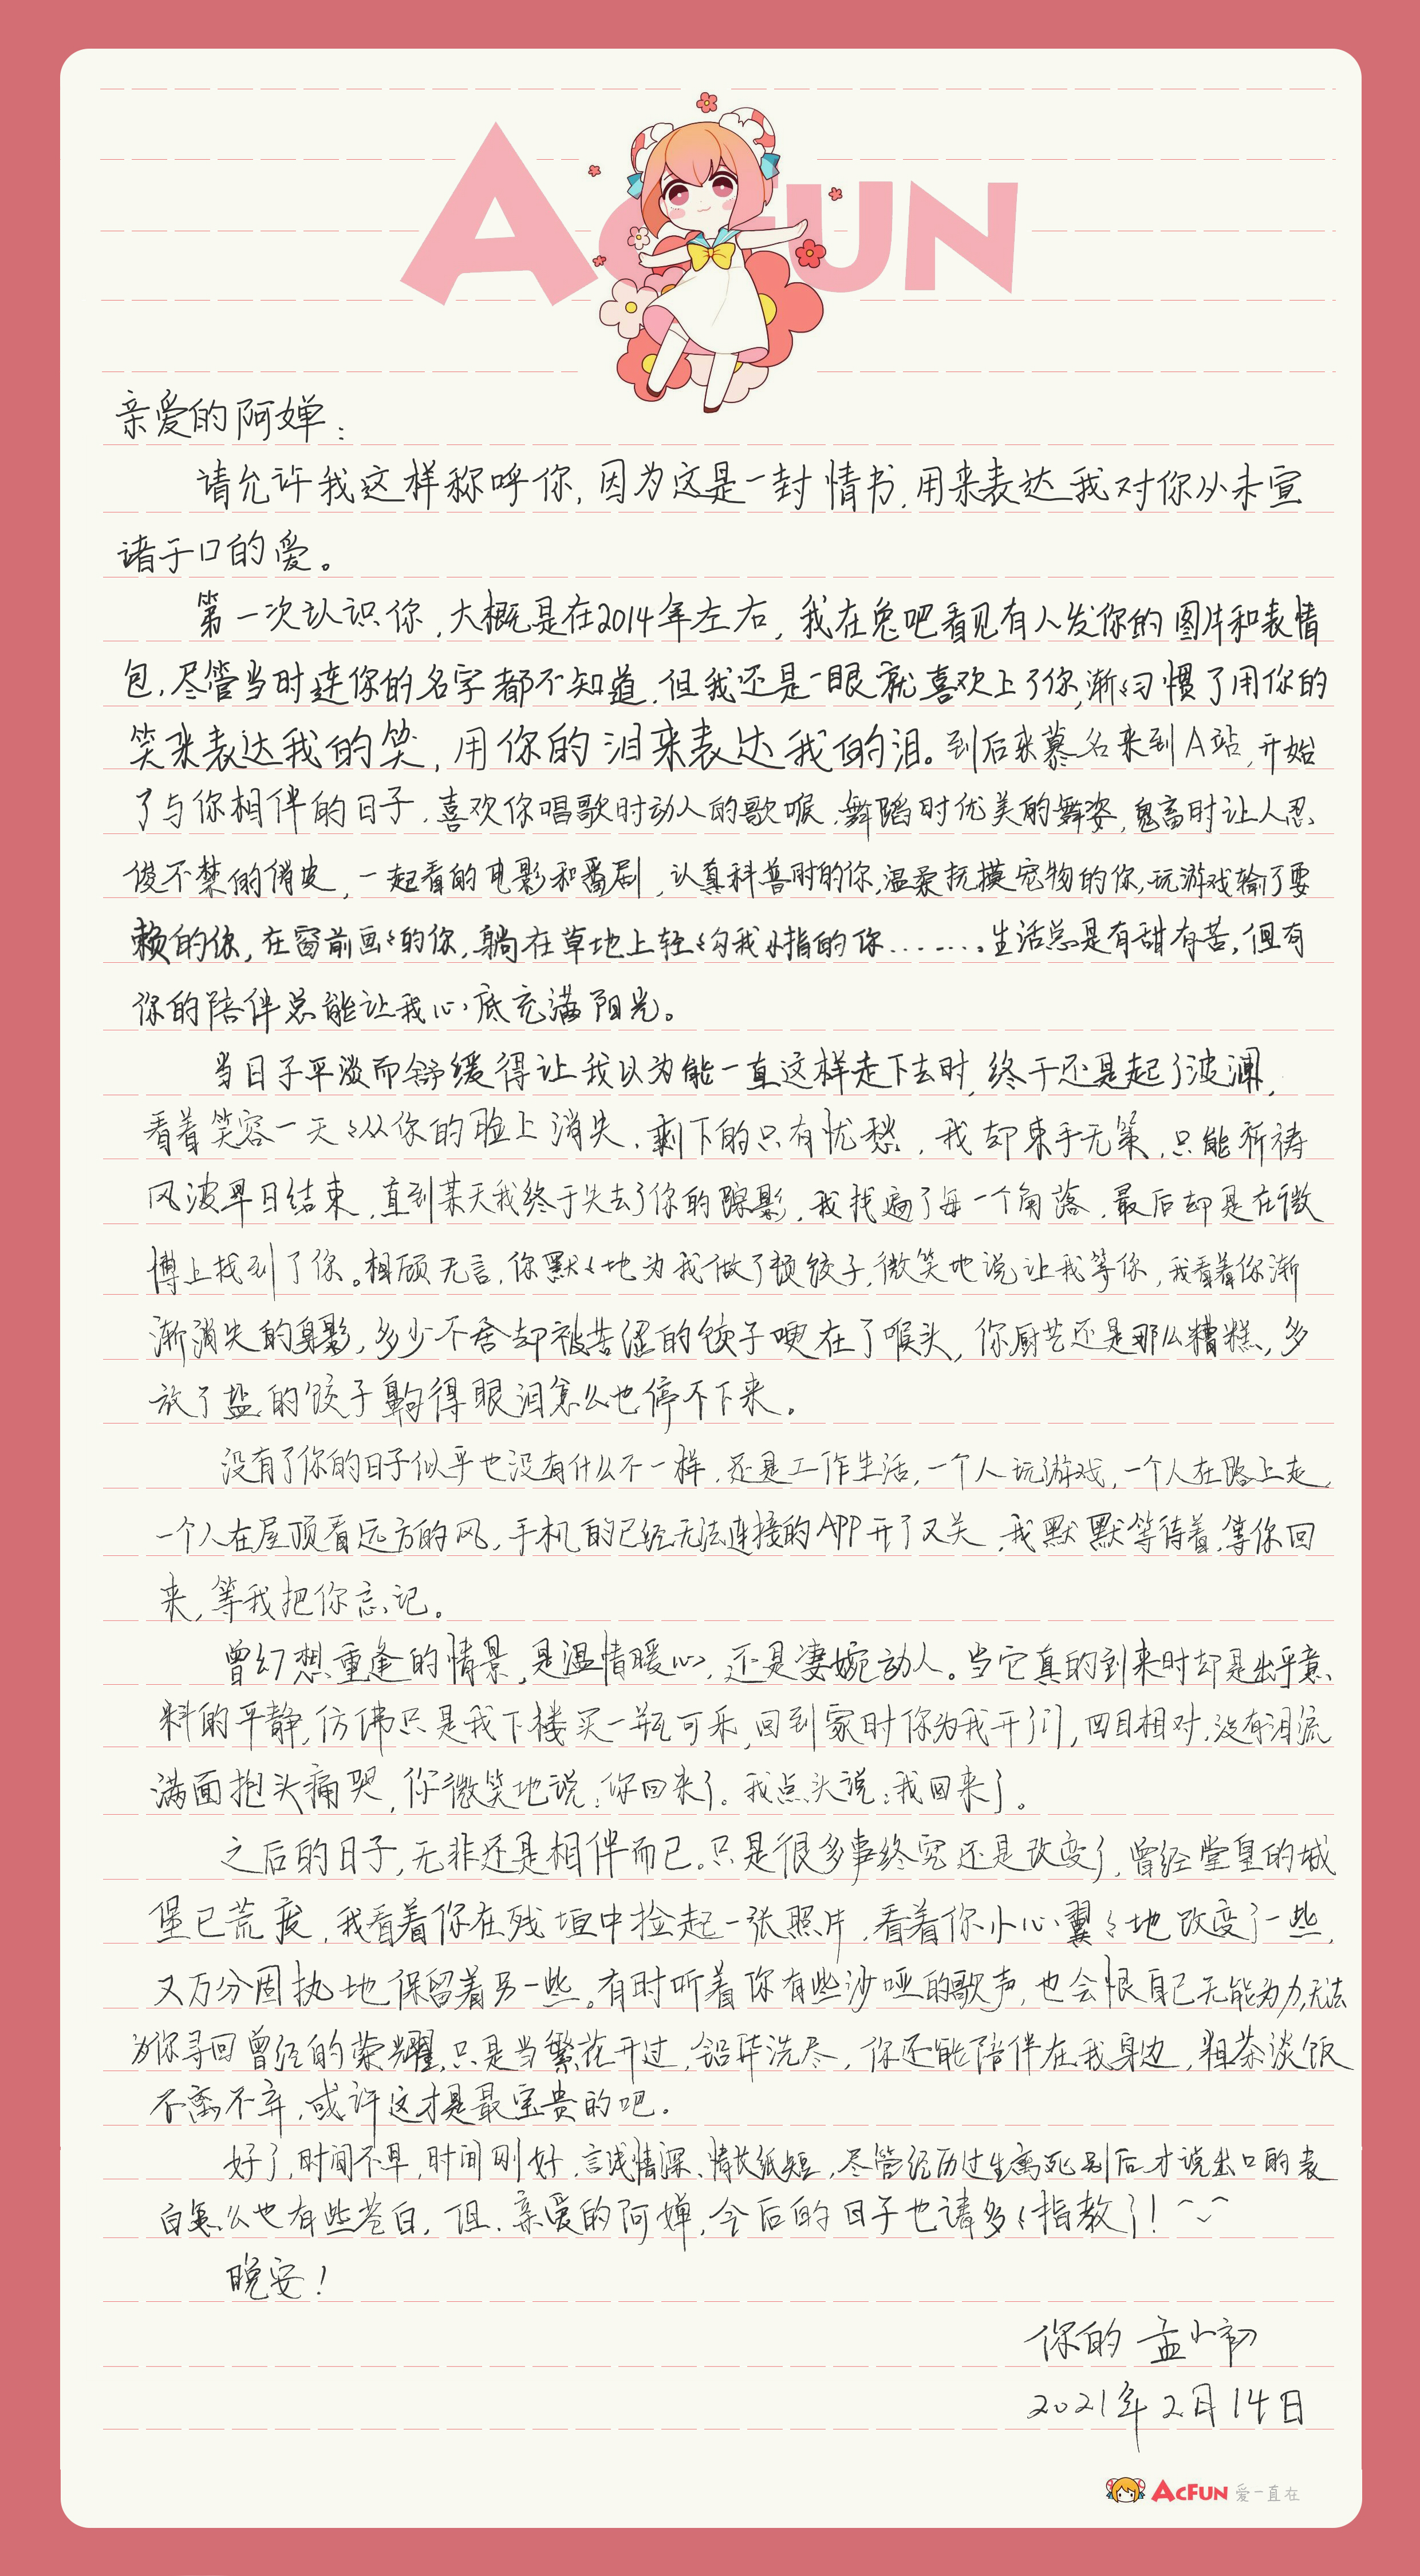 ACFUN
亲爱的阿婵:
请允许我这样称呼你,因为这是一封情书,用来表达我对你从未宣
诸于口的爱。
第一次认识你,大概是在2014年左右,我在兔吧看见有人发你的图片和表情
包,尽管当时连你的名字都不知道,但我还是一眼就喜欢上了你,渐々习惯了用你的
笑来表达我的笑,用你的泪来表达我的泪。到后来慕名来到A站,开始
了与你相伴的日子,喜欢你唱歌时动人的歌喉,舞蹈时优美的舞姿,鬼畜时让人忍
俊不禁的俏皮,一起看的电影和番剧,认真科普时的你,温柔抚摸宠物的你,玩游戏输了耍
赖的你,在窗前画々的你,躺在草地上轻々勾我小指的你.......。生活总是有甜有苦,但有
你的陪伴总能让我心底充满阳光。
当日子平淡而舒缓得让我以为能一直这样走下去时,终于还是起了波澜,
看着笑容一天々从你的脸上消失,剩下的只有忧愁,我却束手无策,只能祈祷
风波早日结束,直到某天我终于失去了你的踪影,我找遍了每一个角落,最后却是在微
博上找到了你。相顾无言,你默々地为我做了顿饺子,微笑地说让我等你,我看着你渐
渐消失的身影,多少不舍却被苦涩的饺子哽在了喉头,你厨艺还是那么糟糕,多
放了盐的饺子齁得眼泪怎么也停不下来。
没有了你的日子似乎也没有什么不一样,还是工作生活,一个人玩游戏,一个人在路上走,
一个人在屋顶看远方的风,手机的已经无法连接的APP开了又关,我默默等待着,等你回
来,等我把你忘记。
曾幻想重逢的情景,是温情暖心,还是凄婉动人。当它真的到来时却是出乎意
料的平静,仿佛只是我下楼买一瓶可乐,回到家时你为我开了门,四目相对,没有泪流
满面抱头痛哭,你微笑地说:你回来了。我点头说:我回来了。
之后的日子,无非还是相伴而已。只是很多事终究还是改变了,曾经堂皇的城
堡已荒废,我看着你在残垣中捡起一张照片,看着你小心翼々地改变了一些,
又万分固执地保留着另一些。有时听着你有些沙哑的歌声,也会恨自己无能为力,无法
为你寻回曾经的荣耀,只是当繁花开过,铅华洗尽,你还能陪伴在我身边,粗茶淡饭
不离不弃,或许这才是最宝贵的吧.
好了,时间不早,时间刚好,言浅情深、情长纸短,尽管经历过生离死别后才说出口的表
白怎么也有些苍白,但,亲爱的阿婵,今后的日子也请多々指教了!^_^
晚安!
你的 孟小初
2021年2月14日
ACFUN 爱一直在